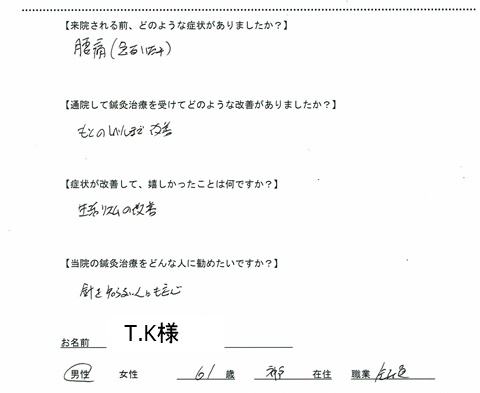 【来院される前、どのような症状がありましたか？】
腰痛(
【通院して鍼灸治療を受けてどのような改善がありましたか？】
もとのレベルまで 改善
【症状が改善して、嬉しかったことは何ですか？】
生活リズムの改善
【当院の鍼灸治療をどんな人に勧めたいですか？】
針を知らない人にも
お名前 T.K様
男性 女性 61 歳 在住 職業